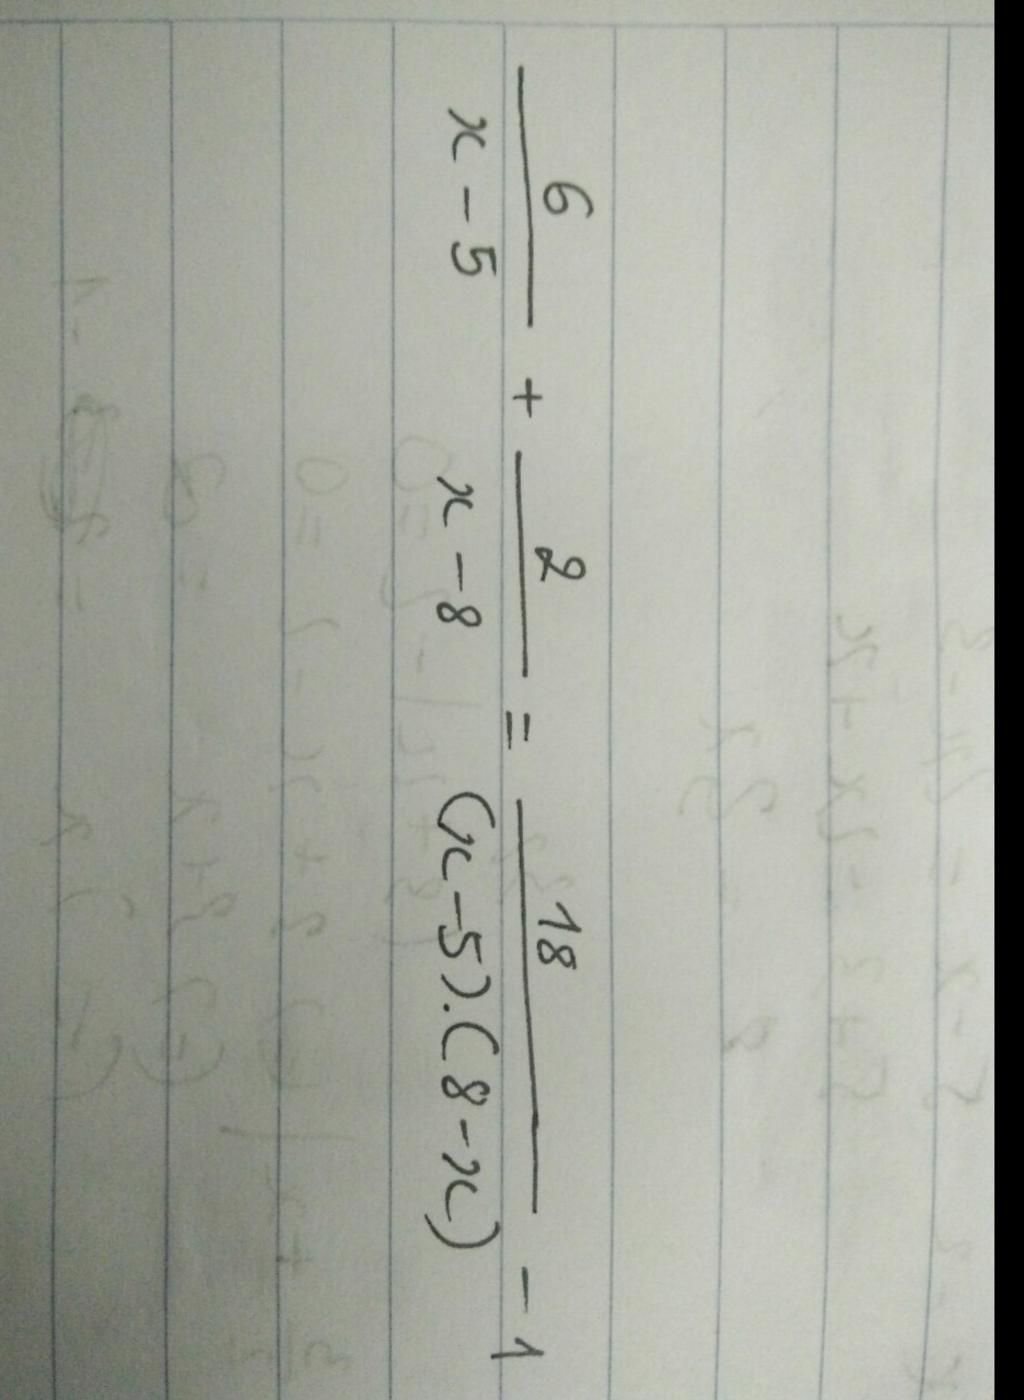 6/(x-5) + 2/(x-8) = 18/((x-5).(8-x)) - 1